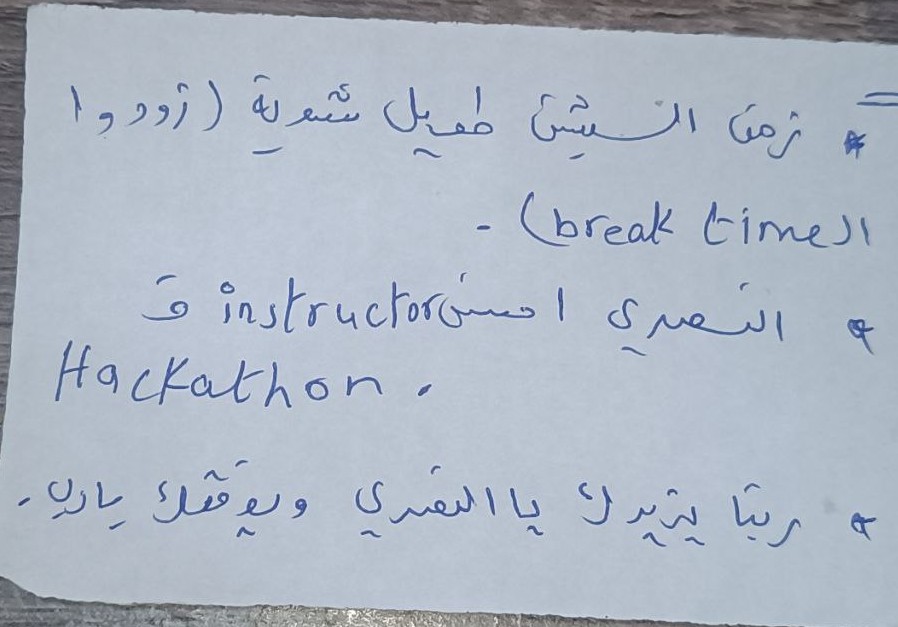 * زمن السيشن طويل شوية (زودوا
الـ break time) .
* النصري احسن instructor ف
Hackathon.
* ربنا يزيدك يا النصري ويوفقك يارب.